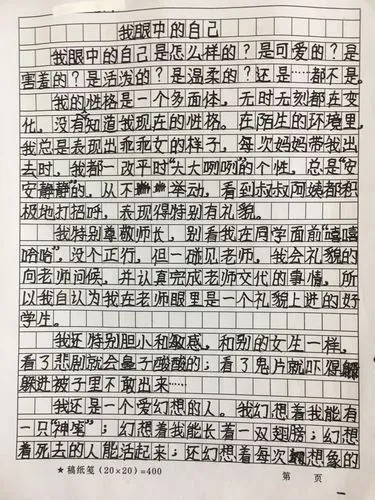 我眼中的自己
我眼中的自己是怎么样的？是可爱的？是
害羞的？是活泼的？是温柔的？还是……都不是。
我的性格是一个多面体。无时无刻都在变
化。没有知道我现在的性格。在陌生的环境里，
我总是表现出乖乖女的样子，每次妈妈带我出
去时，我都一改平时“大大咧咧”的个性。总是“安
安静静的，从不举动，看到叔叔阿姨都积
极地打招呼，表现得特别有礼貌。
我特别尊敬师长，别看我在同学面前“嘻嘻
哈哈”，没个正行。但一碰见老师，我会礼貌的
向老师问候。并认真完成老师交代的事情。所
以我自认为我在老师眼里是一个礼貌上进的好
学生。
我还特别胆小和敏感。和别的女生一样。
看了悲剧就会鼻子酸酸的；看了鬼片就吓得
躲进被子里不敢出来……
我还是一个爱幻想的人。我幻想着我能有
一只“神笔”；幻想着我能长着一双翅膀；幻想
着死去的人能活起来；还幻想着每次幻想象的
★稿纸笺(20×20)=400 第 页